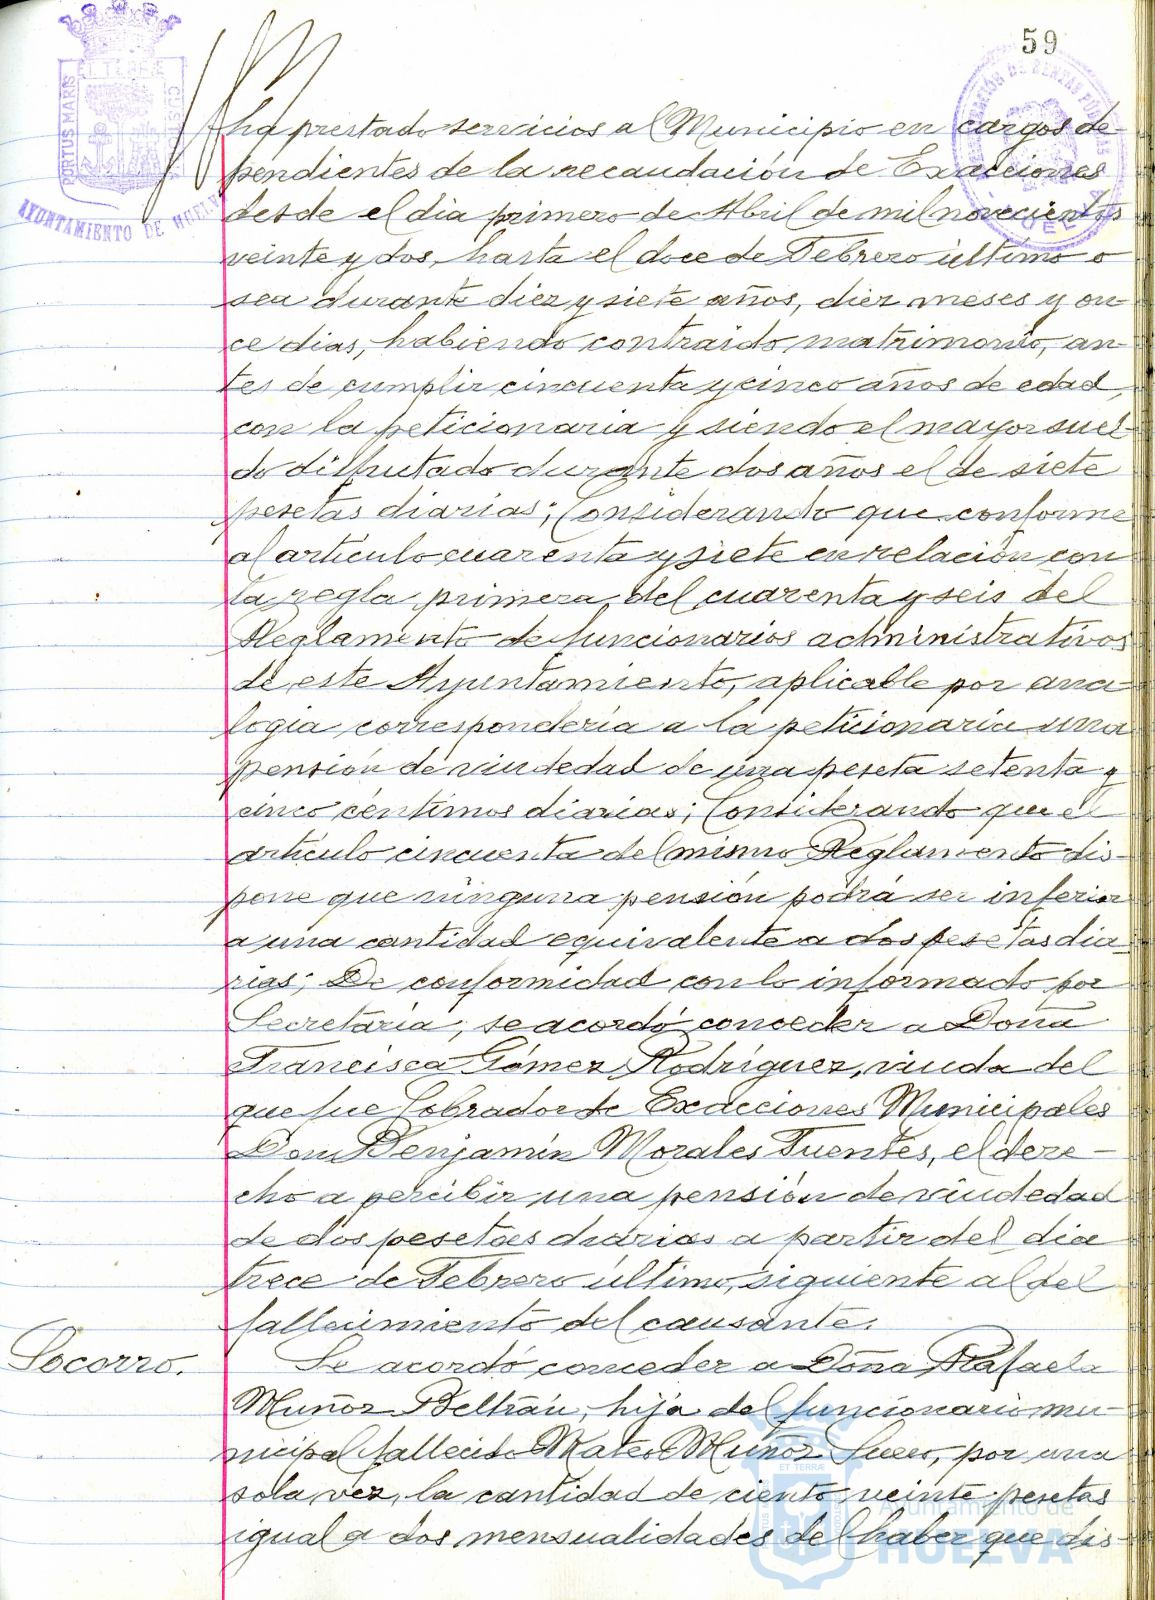 59
PORTUS MARIS ET TERRÆ CUSTODIA
AYUNTAMIENTO DE HUELVA
ha prestado servicios al Municipio en cargos de-
pendientes de la recaudación de Exacciones
desde el dia primero de Abril de mil novecientos
veinte y dos, hasta el doce de Febrero último o
sea durante diez y siete años, diez meses y on-
ce dias, habiendo contraido matrimonio, an-
tes de cumplir cincuenta y cinco años de edad,
con la peticionaria y siendo el mayor suel-
do disfrutado durante dos años el de siete
pesetas diarias; Considerando que conforme
al artículo cuarenta y siete en relación con
la regla primera del cuarenta y seis del
Reglamento de funcionarios administrativos
de este Ayuntamiento, aplicable por ana-
logia correspondería a la peticionaria una
pensión de viudedad de una peseta setenta y
cinco céntimos diarias; Considerando que el
artículo cincuenta del mismo Reglamento dis-
pone que ninguna pensión podrá ser inferior
a una cantidad equivalente a dos pesetas dia-
rias; De conformidad con lo informado por
Secretaría, se acordó conceder a Doña
Francisca Gómez Rodríguez, viuda del
que fue Cobrador de Exacciones Municipales
Don Benjamín Morales Fuentes, el dere-
cho a percibir una pensión de viudedad
de dos pesetas diarias a partir del dia
trece de Febrero último, siguiente al del
fallecimiento del causante.
Socorro.
Se acordó conceder a Doña Rafaela
Muñoz Beltrán, hija del funcionario mu-
nicipal fallecido Mateo Muñoz por una
sola vez, la cantidad de ciento veinte pesetas
igual a dos mensualidades del haber que dis-
Ayuntamiento de
HUELVA